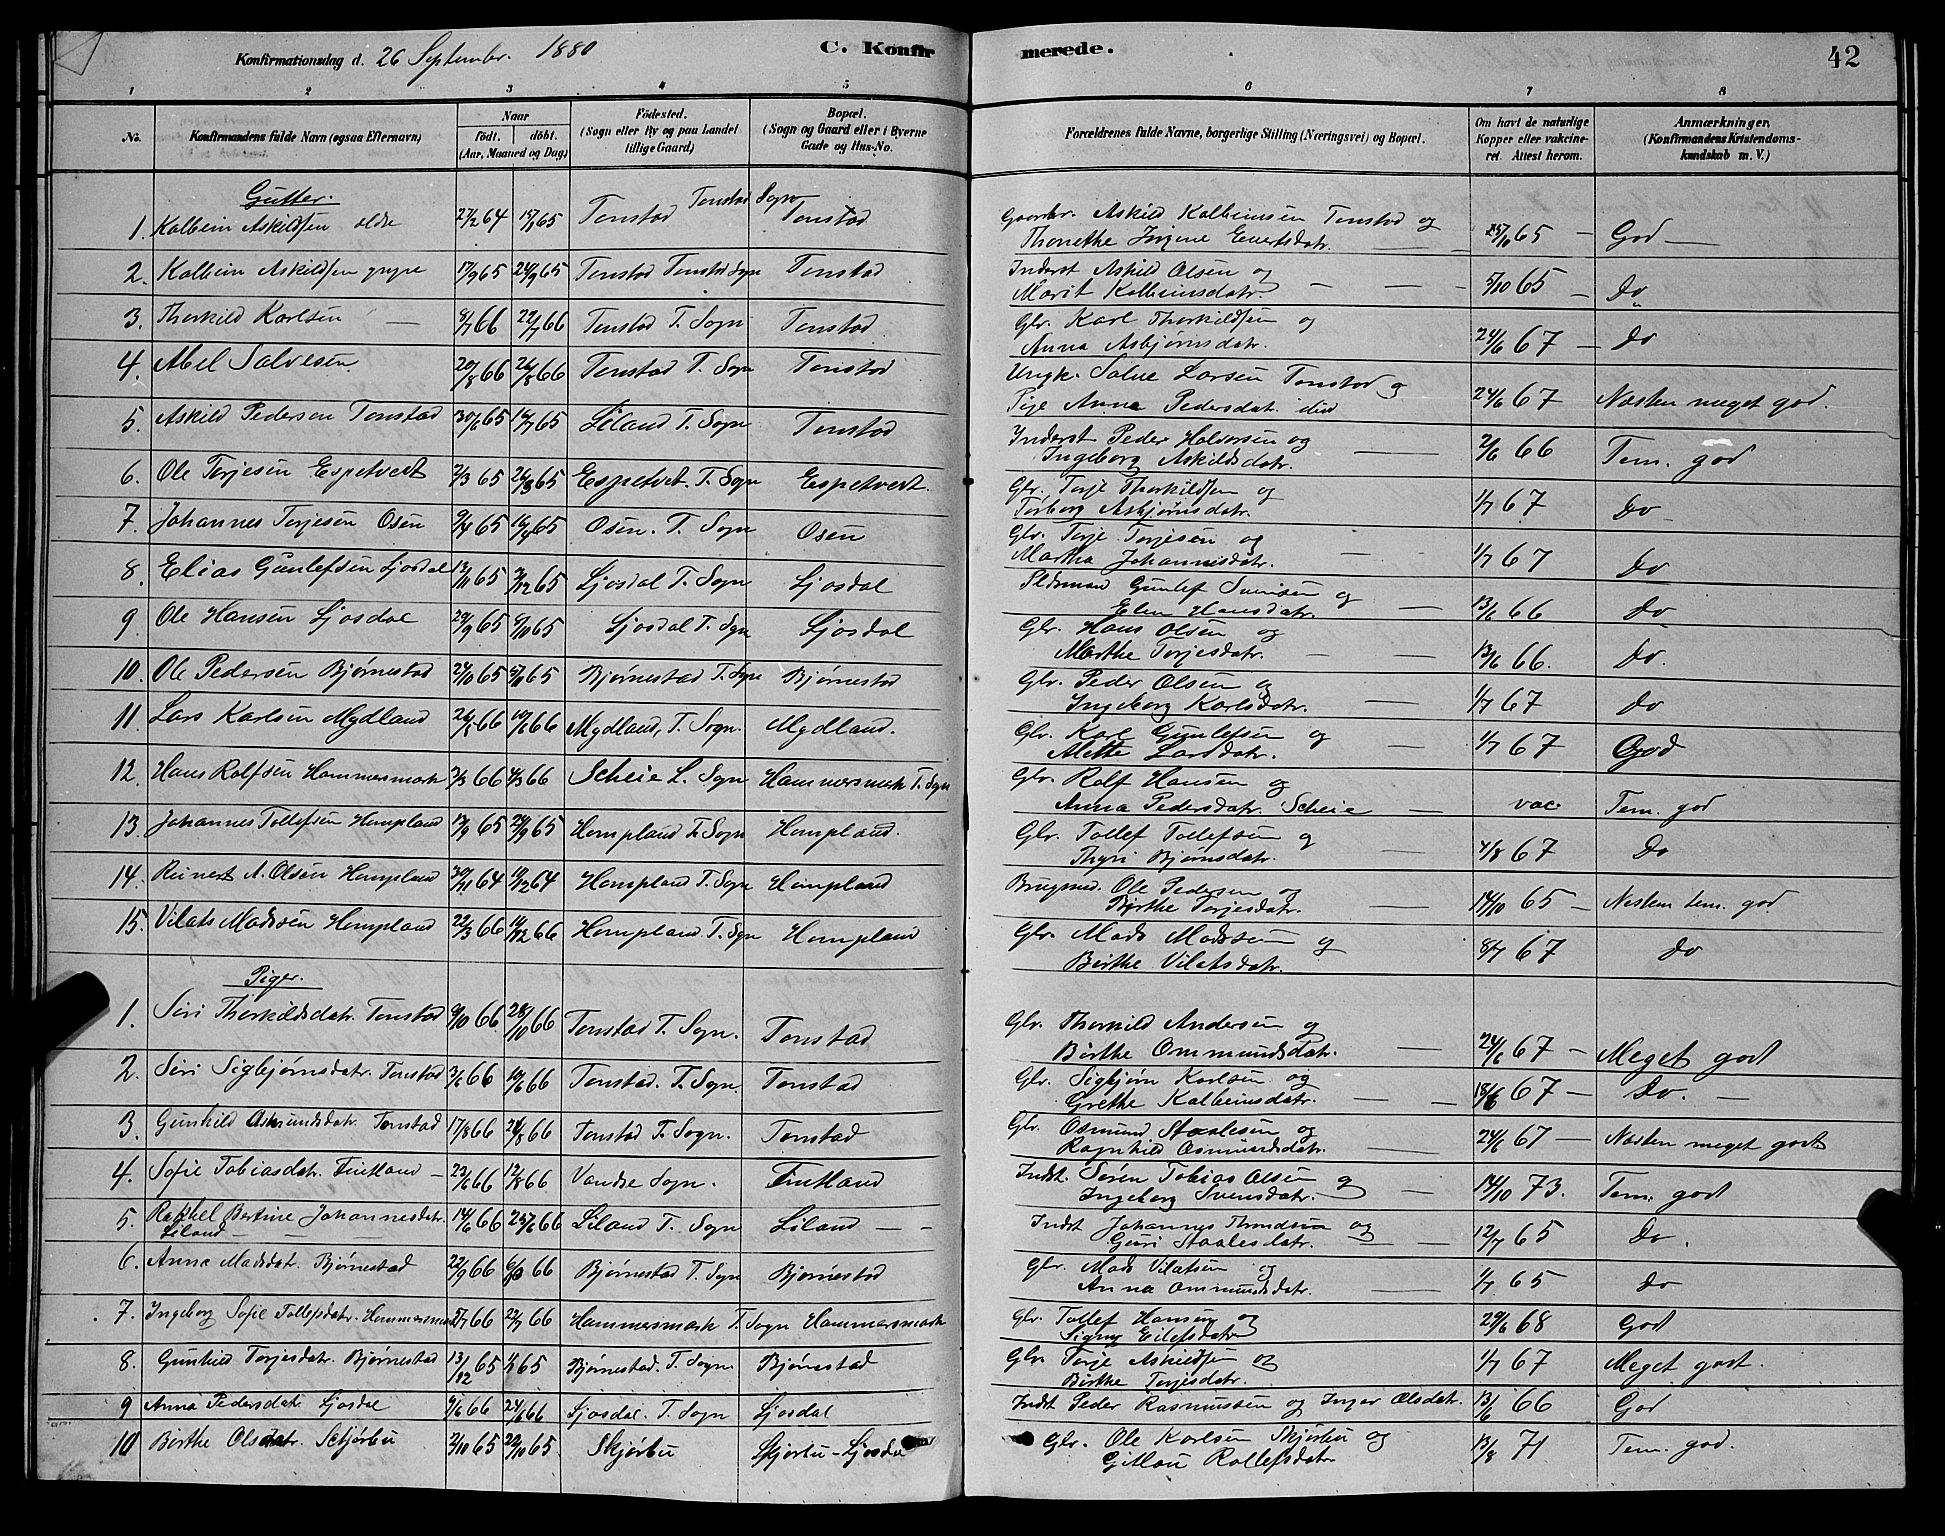 Konfirmationsdag d. 26 September. 1880
C. Konfirmerede.
42
1 2 3 4 5 6 7 8
No. Konfirmandens fulde Navn (ogsaa Efternavn) Naar födt. döbt. (Aar, Maaned og Dag) Födested. (Sogn eller By og paa Landet tillige Gaard) Bopæl. (Sogn og Gaard eller i Byerne Gade og Hus-No. Forældrenes fulde Navne, borgerlige Stilling (Næringsvei) og Bopæl. Om havt de naturlige Kopper eller vakcineret. Attest herom. Anmærkninger. (Konfirmandens Kristendomskundskab m. V.)
Gutter. Tonstad Sogn
1. Kolbein Askildsen ældre 27/2 64 65 Tonstad Tonstad Gaardbr. Askild Kolbeinsen Tonstad og Thonethe Evertsdatr. 25/10 65 God
2. Kolbein Askildsen yngre 17/9 65 24/9 65 Tonstad Tonstad Sogn Tonstad Inderst Askild Olsen og Marit Kolbeinsdatr. 5/10 65 Do
3. Thorkild Karlsen 8/7 66 22/7 66 Tonstad T. Sogn Tonstad Gbr. Karl Thorkildsen og Anna Asbjørnsdatr. 24/6 67 Do
4. Abel Salvesen 20/8 66 26/8 66 Tonstad T. Sogn Tonstad Ungk. Salve Larsen Tonstad og Pige Anna Pedersdat. ibid 24/6 67 Næsten meget god.
5. Askild Pedersen Tonstad 30/6 65 16/7 65 Liland T. Sogn Tonstad Inderst Peder Halvorsen og Ingeborg Askildsdatr. 2/6 66 Tem. god
6. Ole Torjesen Espetveit 2/3 65 26/3 65 Espetvet. T. Sogn Espetvert. Gbr. Torje Thorkildsen og Torborg Asbjørnsdatr. 1/7 67 Do
7. Johannes Torjesen Osen 9/4 65 16/4 65 Osen. T. Sogn Osen Gbr. Torje Torjesen og Martha Johannesdatr. 1/7 67 Do
8. Elias Gunlefsen Ljosdal 13/11 65 3/12 65 Ljosdal T. Sogn Ljosdal Gunlef Svensen og Elen Hansdatr. 13/6 66 Do
9. Ole Hansen Ljosdal 24/9 65 8/10 65 Ljosdal T. Sgn Ljosdal Gbr. Hans Olsen og Marthe Torjesdatr. 13/6 66. Do.
10. Ole Pedersen Bjørnestad 24/10 65 65 Bjørnestad T. Sogn Bjørnestad Gbr. Peder Olsen og Ingeborg Karlsdatr. 1/7 67 Do
11. Lars Karlsen Mydland 26/5 66 10/6 66 Mydland, T. Sogn. Mydland. Gbr. Karl Gunlefsen og Mette Larsdatr. 1/7 67 God
12. Hans Rolfsen Hammersmark 2/3 66 4/3 66 Scheie L. Sogn Hammersmark T. Sogn Gbr. Rolf Hansen og Anna Pedersdatr. Scheie vac. Tem. god
13. Johannes Tollefsen Hompland 12/9 65 24/9 65 Hompland T. Sogn Hompland. Gbr. Tollef Tollefsen og Thyri Bjørnsdatr. 4/8 67 Do
14. Reinert A. Olsen Hompland 30/11 64 18/12 64 Hompland T. Sogn Hompland Brugsmd. Ole Pedersen og Birthe Torjesdatr. 14/10 65 Næsten tem. god
15. Vilats Madssen Hompland 22/3 66 66 Hompland T. Sogn Hompland Gbr. Mads Madssen og Birthe Vilatsdatr. 8/7 67 Do
Piger.
1. Siri Thorkildsdatr. Tonstad 9/10 66 28/10 66 Tonstad T. Sogn. Tonstad Gbr. Thorkild Andersen og Birthe Ommundsdatr. 24/6 67 Meget godt
2. Siri Sigbjørnsdatr. Tonstad 3/6 66 10/6 66 Tonstad. T. Sogn Tonstad Gbr. Sigbjørn Karlsen og Grethe Kolbeinsdatr. 18/6 67 Do.
3. Gunhild Asmundsdatr. Tonstad 17/8 66 26/8 66 Tonstad T. Sogn. Tonstad Gbr. Osmund Staalesen og Ragnhild Osmundsdatr. 24/6 67 Næsten meget godt
4. Sofie Tobiasdatr. Fintland 23/6 66 12/8 66 Vandse Sogn. Fintland Indst. Søren Tobias Olsen og Ingeborg Svensdatr. 14/10 73. Tem. godt
5. Rakhel Bertine Johannesdatr. Liland 14/6 66 66 Liland T. Sogn Liland Indst Johannes Thondsen og Guri Staalesdatr. 12/7 65 Do.
6. Anna Madsdatr. Bjørnestad 22/9 66 66 Bjørnestad T. Sogn Bjørnestad Gbr. Mads Vilatsen og Anna Ommundsdatr. 1/7 65 Do
7. Ingeborg Sofie Tollefsdatr. Hammersmark 5/7 66 22/7 66 Hammersmark T. Sogn Hammersmark Gbr. Tollef Hansen og Signy Eilefsdatr 29/6 68 God
8. Gunhild Torjesdatr. Bjørnestad 13/12 65 65 Bjørnestad. T. Sogn. Bjørnestad Gbr. Torje Askildsen og Birthe Torjesdatr. 1/7 67 Meget godt.
9 Anna Pedersdatr Ljosdal 9/6 66 24/6 66 Ljosdal. T. Sogn Ljosdal Indst Peder Rasmussen og Inger Olsdatr. 13/6 66 God
10 Birthe Olsdatr. Skjørbu 2/10 65 22/10 65. Skjørbu Skjørbu-Ljosdal Gbr. Ole Karlsen Skjørbu og Gitlou Rollefsdatr 13/8 71 Tem. god.